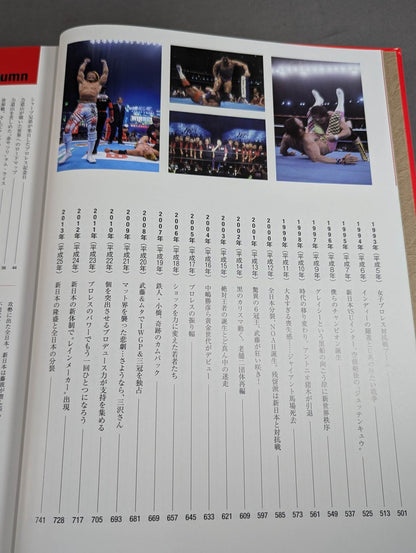 umn
1993年（平成5年） 女子プロレス対抗戦 501
1994年（平成6年） 513
1995年（平成7年） 新日本VS 525
1996年（平成8年） 僕らのチャンピオン誕生 537
1997年（平成9年） グレイシーという黒船の到来で岸に新世界秩序
1998年（平成10年） 時代の移り変わり。アントニオ猪木が引退 561
1999年（平成11年） 大きすぎる喪失感…ジャイアント馬場死去 573
2000年（平成12年） 全日本分裂、NOAH誕生。残留組は新日本と対抗戦 585
2001年（平成13年） 驚異の6冠王。武藤が狂い咲き 597
2002年（平成14年） 黒のカリスマ動く。老舗二団体再編 609
2003年（平成15年） 絶対王者の誕生とどん中の迷走 621
2004年（平成16年） 中嶋勝彦、黄金世代がデビュー 633
2005年（平成17年） プロレスの振り幅 645
2006年（平成18年） ショックを力に変えた若者たち 657
2007年（平成19年） 鉄人・小橋、奇跡のカムバック 669
2008年（平成20年） 武藤＆ムタでIWGP＆三冠を独占 681
2009年（平成21年） マット界を襲った悲劇…さようなら、三沢さん 693
2010年（平成22年） 個を突出させるプロデュース力が支持を集める 705
2011年（平成23年） プロレスのパワーでもう一回ひとつになろう 717
2012年（平成24年） 新日本の新体制で、レインメーカー出現 728
2013年（平成25年） 新日本の隆盛と全日本の分裂 741